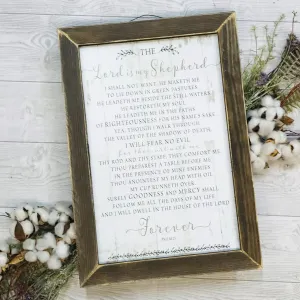 THE
Lord is my Shepherd
I SHALL NOT WANT, HE MAKETH ME
TO LIE DOWN IN GREEN PASTURES
HE LEADETH ME BESIDE THE STILL WATERS
HE RESTORETH MY SOUL
HE LEADETH ME IN THE PATHS
OF RIGHTEOUSNESS FOR HIS NAME'S SAKE
YEA, THOUGH I WALK THROUGH
THE VALLEY OF THE SHADOW OF DEATH,
I WILL FEAR NO EVIL
for thou art with me
THY ROD AND THY STAFF, THEY COMFORT ME
THOU PREPAREST A TABLE BEFORE ME
IN THE PRESENCE OF MINE ENEMIES
THOU ANOINTEST MY HEAD WITH OIL
MY CUP RUNNETH OVER
SURELY GOODNESS AND MERCY SHALL
FOLLOW ME ALL THE DAYS OF MY LIFE
AND I WILL DWELL IN THE HOUSE OF THE LORD
Forever